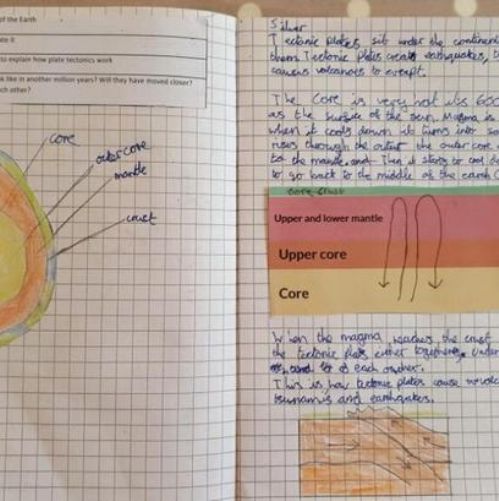 of the Earth
ate it
to explain how plate tectonics work
k like in another million years? Will they have moved closer?
ch other?
core
outer core
mantle
crust
Silver
Tectonic plates sit under the continent
them Tectonic plates create earthquakes, t
causes volcanoes to erupt.
The Core is very hot its 600
as the surface of the sun. Magma is
when it cools down it turns into so
rises through the outer the outer core
to the mantle. and Then it starts to cool d
to go back to the middle of the earth (
Core Crust
Upper and lower mantle
Upper core
Core
When the magma reaches the crust
the tectonic plates either together, under
or each other.
This is how tectonic plates cause
tsunamis and earthquakes.